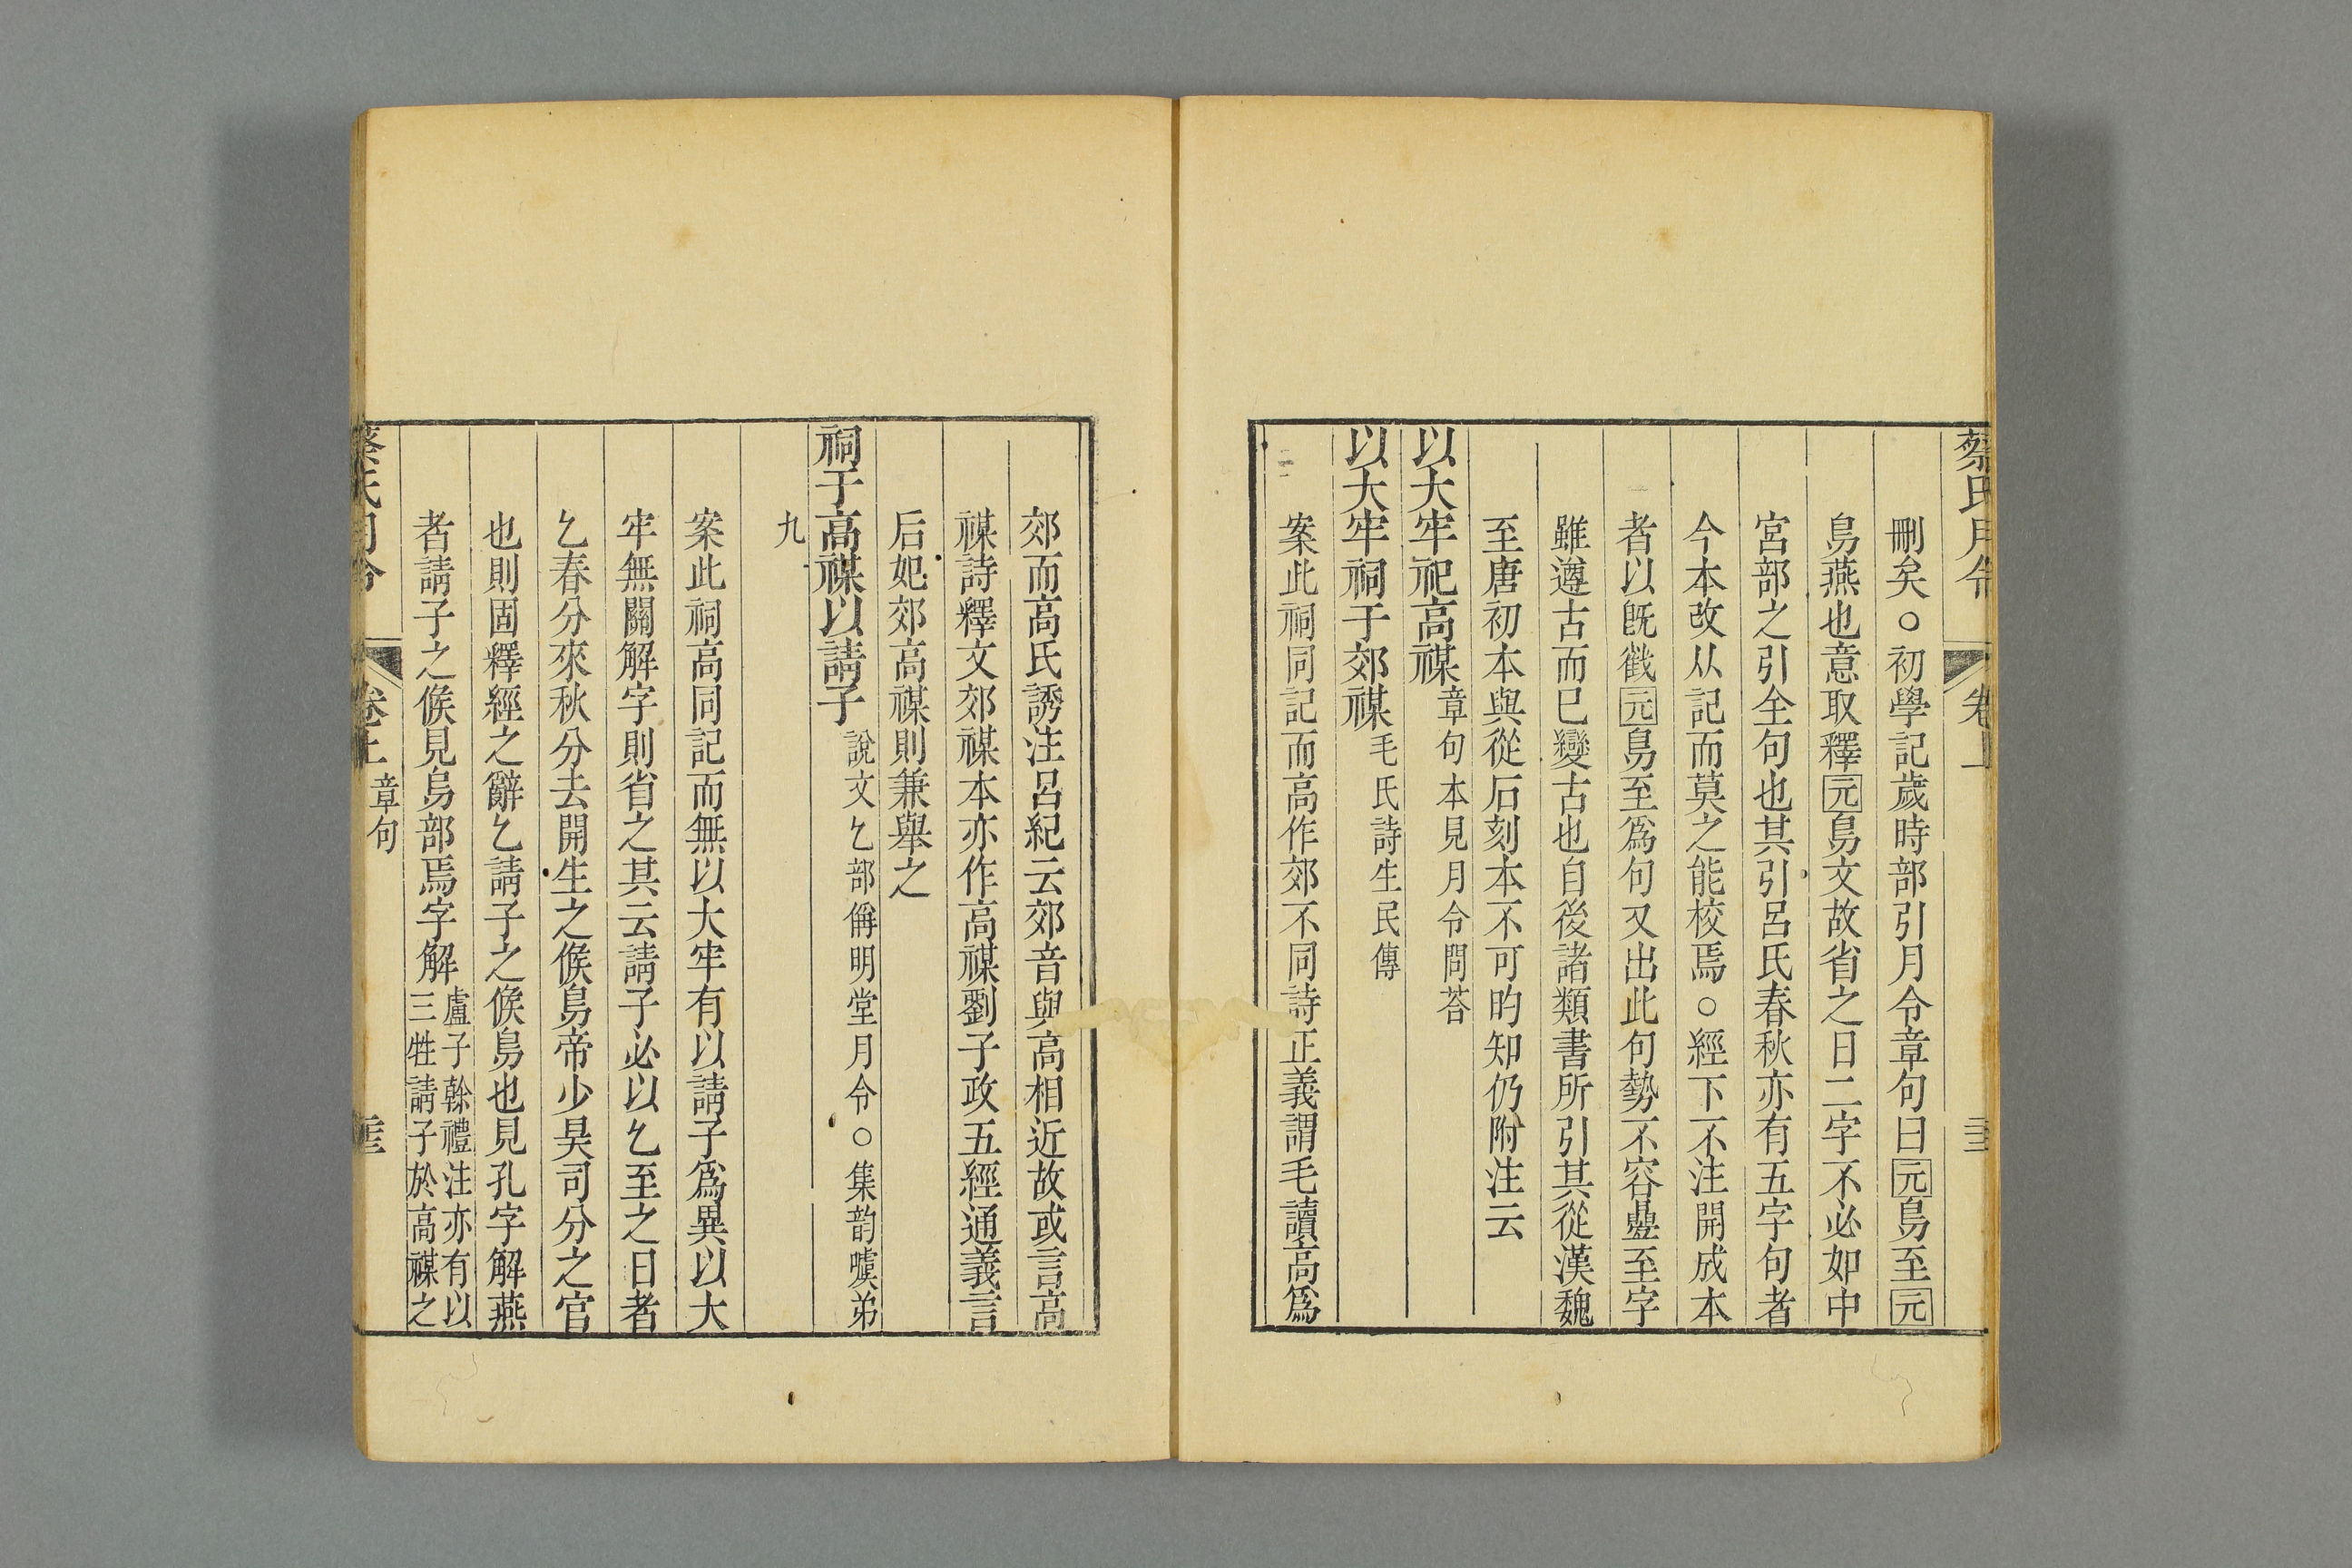 蔡氏月令 卷上
刪矣○初學記歲時部引月令章句曰元鳥至元
鳥燕也意取釋元鳥文故省之日二字不必如中
宮部之引全句也其引呂氏春秋亦有五字句者
今本改从記而莫之能校焉○經下不注開成本
者以旣戳元鳥至爲句又出此句勢不容疊至字
雖遵古而已變古也自後諸類書所引其從漢魏
至唐初本與從石刻本不可昀知仍附注云
以大牢祀高禖章句本見月令問荅
以大牢祠于郊禖毛氏詩生民傳
案此祠同記而高作郊不同詩正義謂毛讀高爲
郊而高氏誘注呂紀云郊音與高相近故或言高
禖詩釋文郊禖本亦作高禖劉子政五經通義言
后妃郊高禖則兼舉之
祠于高禖以請子說文乞部偁明堂月令○集韵噳弟
九
案此祠高同記而無以大牢有以請子爲異以大
牢無關解字則省之其云請子必以乞至之日者
乞春分來秋分去開生之候鳥帝少昊司分之官
也則固釋經之辭乞請子之候鳥也見孔字解燕
者請子之候見鳥部焉字解盧子榦禮注亦有以
三牲請子於高禖之
蔡氏月令 卷上 章句